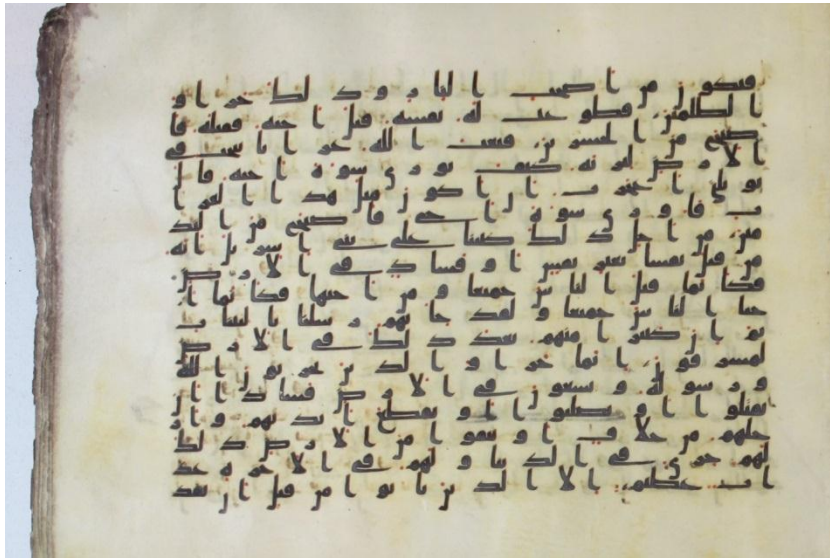 فتكون من اصحب النار وذلك جزاو
ا الظلمين فطوعت له نفسه قتل اخيه فقتله فا
صبح من الخسرين فبعث الله غرابا يبحث في
الارض ليريه كيف يوري سوة اخيه قال
يويلتى اعجزت ان اكون مثل هذا الغرا
ب فاوري سوة اخي فاصبح من الند
مين من اجل ذلك كتبنا على بني اسريل انه
من قتل نفسا بغير نفس او فساد في الارض
فكانما قتل الناس جميعا ومن احيها فكانما ا
حيا الناس جميعا ولقد جاتهم رسلنا بالبينت
ثم ان كثيرا منهم بعد ذلك في الارض
لمسرفون انما جزاوا الذين يحربون الله
ورسوله ويسعون في الارض فسادا ان
يقتلوا او يصلبوا او تقطع ايديهم وار
جلهم من خلاف او ينفوا من الارض ذلك
لهم خزي في الدنيا ولهم في الاخرة عذ
اب عظيم الا الذين تابوا من قبل ان تقد